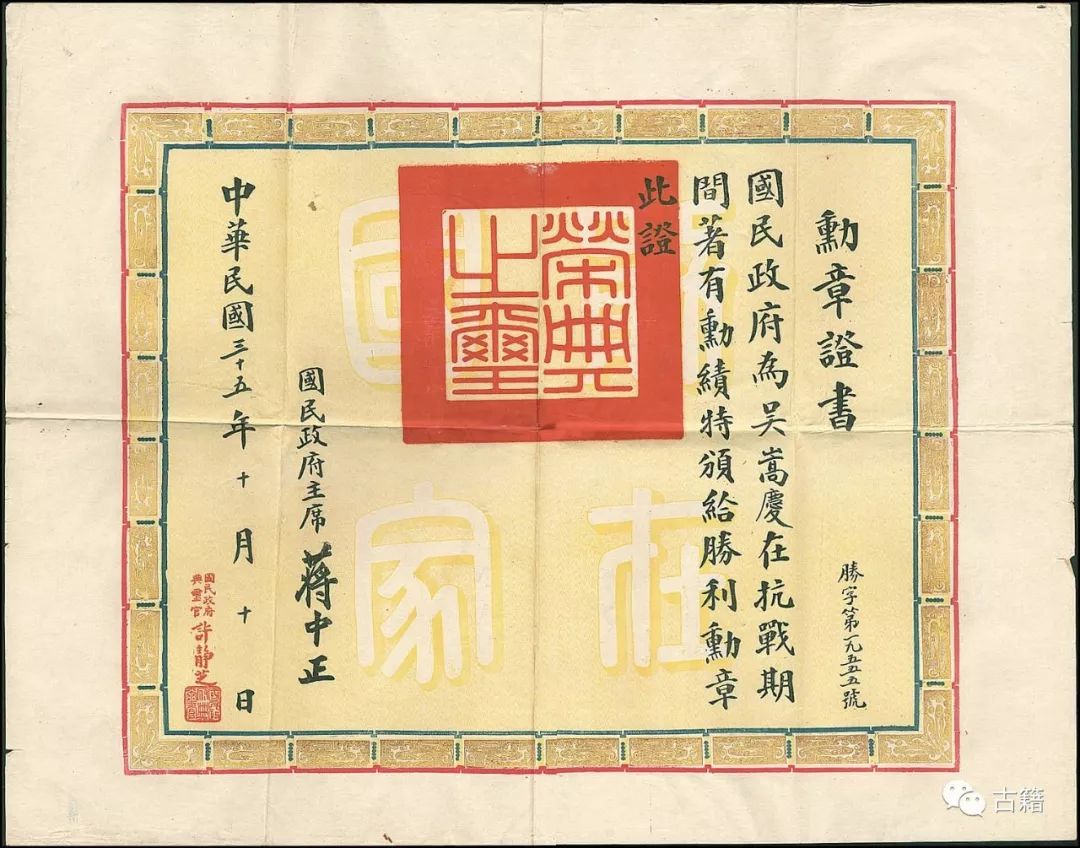 勳章證書
國民政府為吳嵩慶在抗戰期
間著有勳績特頒給勝利勳章
此證
勝字第一九五五五號
榮典
之璽
國民政府主席 蔣中正
中華民國三十五年十月十日
國民政府
典璽官 許靜芝
在
國
家
古籍